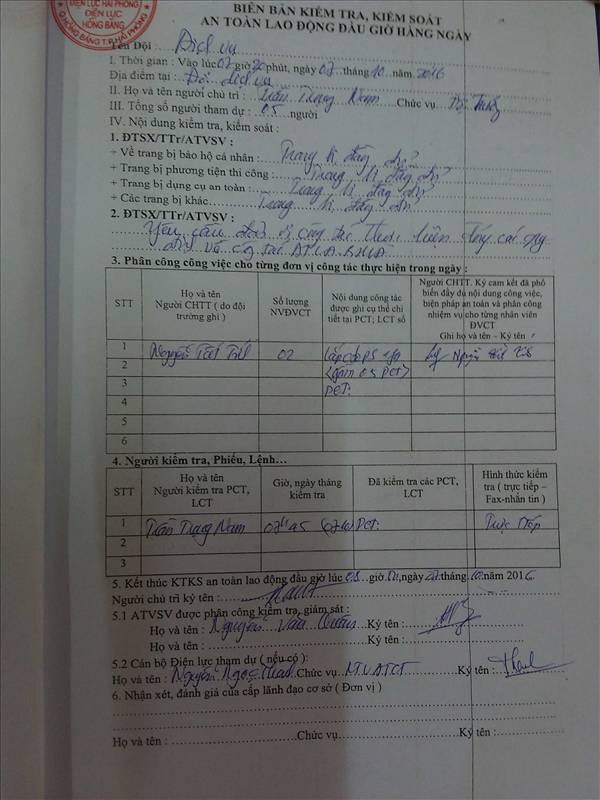 ĐIỆN LỰC HẢI PHÒNG
ĐIỆN LỰC
HỒNG BÀNG
Q.HỒNG BÀNG T.P.HẢI PHÒNG
BIÊN BẢN KIỂM TRA, KIỂM SOÁT
AN TOÀN LAO ĐỘNG ĐẦU GIỜ HÀNG NGÀY
Tên Đội : Dịch vụ
I. Thời gian : Vào lúc 07 giờ 20 phút, ngày 07 tháng 10 năm 2016
Địa điểm tại : Đội dịch vụ
II. Họ và tên người chủ trì : Trần Trọng Nam Chức vụ
III. Tổng số người tham dự : 05 người
IV. Nội dung kiểm tra, kiểm soát :
1. ĐTSX/TTr/ATVSV :
+ Về trang bị bảo hộ cá nhân : Trang bị đầy đủ
+ Trang bị phương tiện thi công : Trang bị đầy đủ
+ Trang bị dụng cụ an toàn : Trang bị đầy đủ
+ Các trang bị khác Trang bị đầy đủ
2. ĐTSX/TTr/ATVSV :
Yêu cầu đơn vị công tác
3. Phân công công việc cho từng đơn vị công tác thực hiện trong ngày :
STT
Họ và tên
Người CHTT ( do đội
trưởng ghi )
Số lượng
NVĐVCT
Nội dung công tác
được ghi cụ thể chi
tiết tại PCT; LCT số
Người CHTT. Ký cam kết đã phổ
biến đầy đủ nội dung công việc,
biện pháp an toàn và phân công
nhiệm vụ cho từng nhân viên
ĐVCT
Ghi họ và tên – Ký tên
1 Nguyễn 02
(gồm 05 PCT)
PCT:
2
3
4
5
6
4. Người kiểm tra, Phiếu, Lệnh…
STT
Họ và tên
Người kiểm tra PCT,
LCT
Giờ, ngày tháng
kiểm tra
Đã kiểm tra các PCT,
LCT
Hình thức kiểm
tra ( trực tiếp –
Fax-nhắn tin )
1 Trần Trọng Nam PCT: Trực tiếp
2
3
5. Kết thúc KTKS an toàn lao động đầu giờ lúc giờ ,ngày tháng 10 năm 2016
Người chủ trì ký tên :
5.1 ATVSV được phân công kiểm tra, giám sát :
Họ và tên : Nguyễn Văn Ký tên :
Họ và tên : Ký tên :
5.2 Cán bộ Điện lực tham dự ( nếu có ):
Họ và tên : Nguyễn Ngọc Chức vụ NVATCT Ký tên :
6. Nhận xét, đánh giá của cấp lãnh đạo cơ sở ( Đơn vị )
Họ và tên : Chức vụ Ký tên :